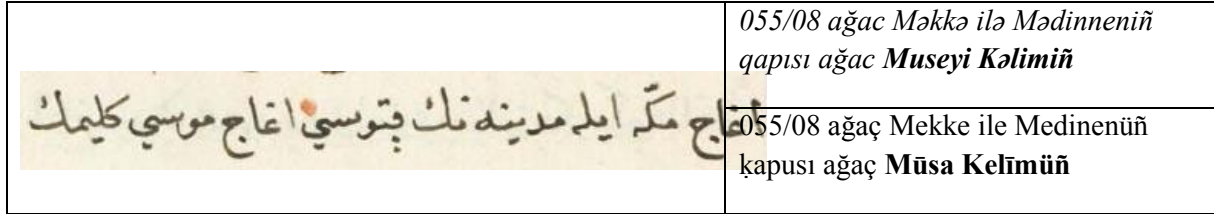 اغاج مكّه ايله مدينه نك قپوسي اغاج موسي كليمك
055/08 ağac Məkkə ilə Mədinneniñ
qapısı ağac Museyi Kəlimiñ
055/08 ağaç Mekke ile Medinenüñ
ḳapusı ağaç Mūsa Kelīmüñ